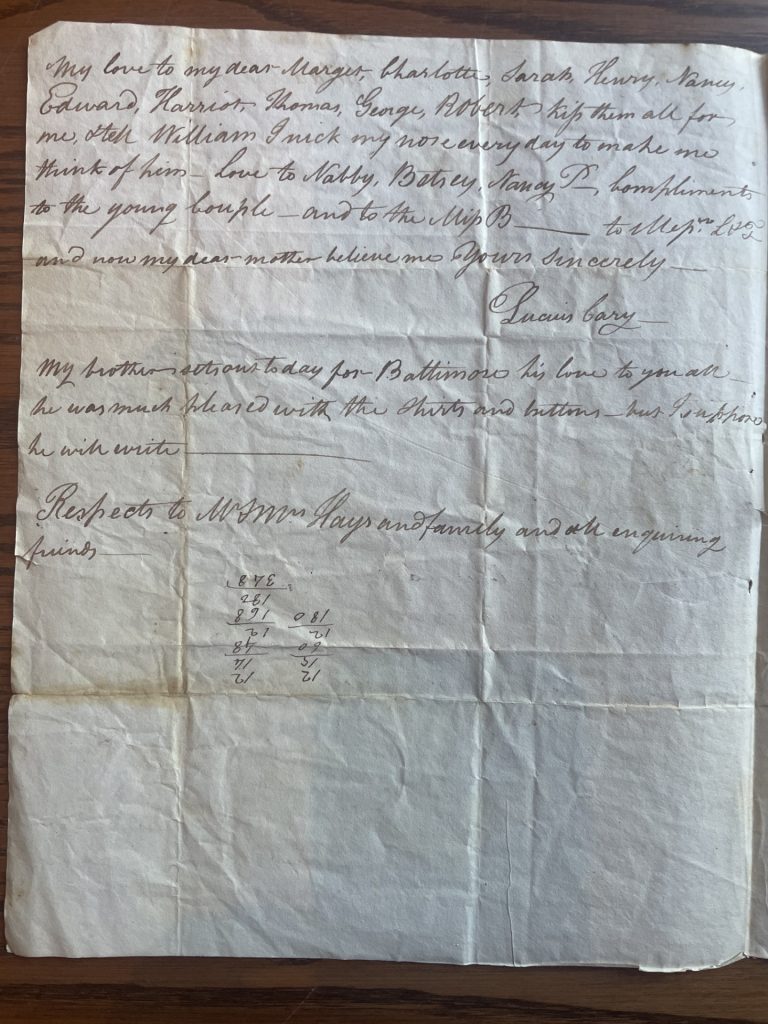 My love to my dear Marget, Charlotte, Sarah, Henry, Nancy,
Edward, Harriot, Thomas, George, Robert, kiss them all for
me, & tell William I nick my nose every day to make me
think of him — Love to Nabby, Betsey, Nancy P— Compliments
to the young Couple — and to the Miss B—— to Messrs L & T
and now my dear mother believe me Yours Sincerely —
Lucius Cary —
My brother sets out to day for Baltimore his love to you all —
he was much pleased with the shirts and buttons — but I suppose
he will write ——
Respects to Mr & Mrs Hays and family and all enquiring
friends —
12 12
14 15
48 60
12 12
168 180
132
348